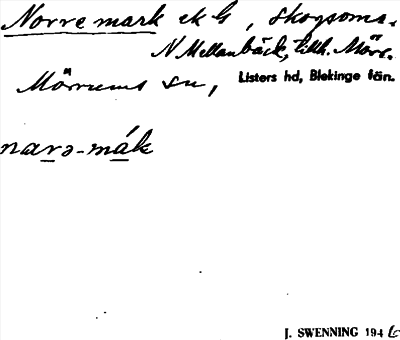 Norremark ek G, skogsomr.
N Mellanbäck, tillh. Mörr.
Mörrums sn, Listers hd, Blekinge län.
narə-mák
J. SWENNING 1946